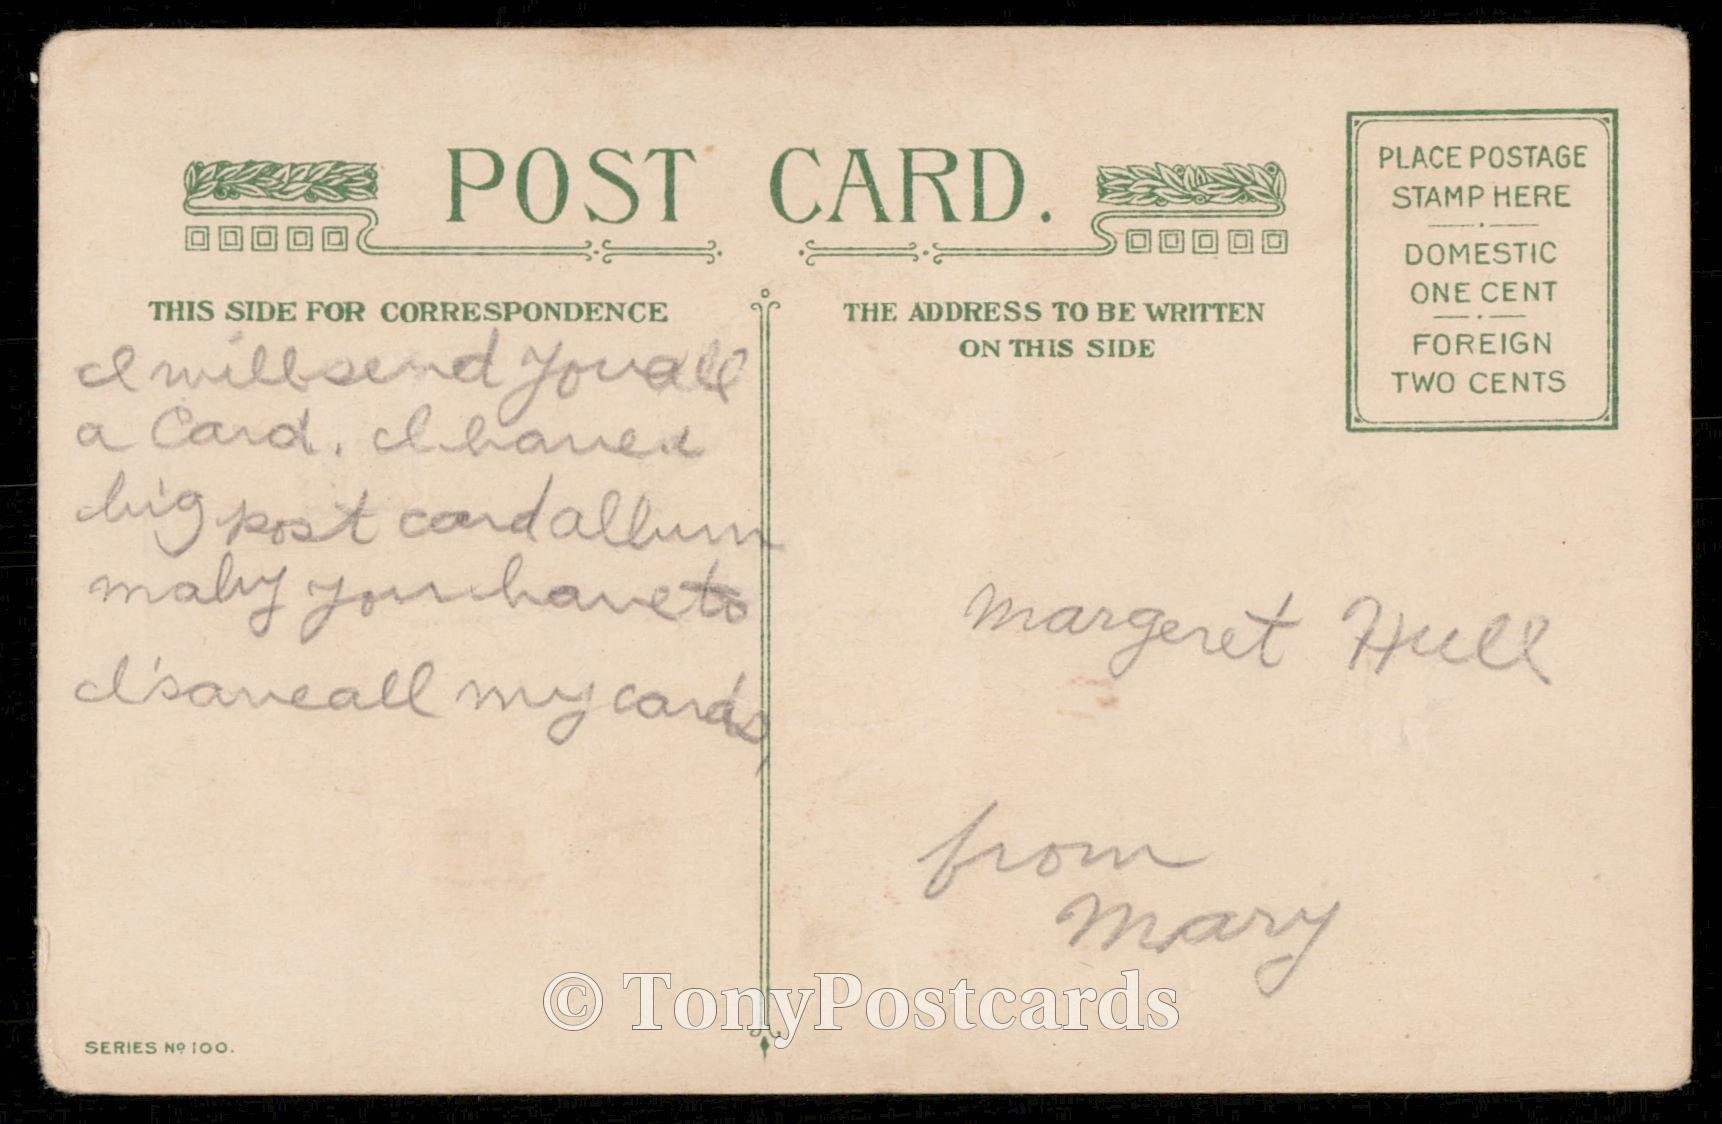 POST CARD.
PLACE POSTAGE
STAMP HERE
DOMESTIC
ONE CENT
FOREIGN
TWO CENTS
THIS SIDE FOR CORRESPONDENCE
THE ADDRESS TO BE WRITTEN
ON THIS SIDE
I will send you all
a Card. I have a
big post card album
maby you have to
I save all my cards,
Margeret Hull
from
Mary
© TonyPostcards
SERIES No 100.